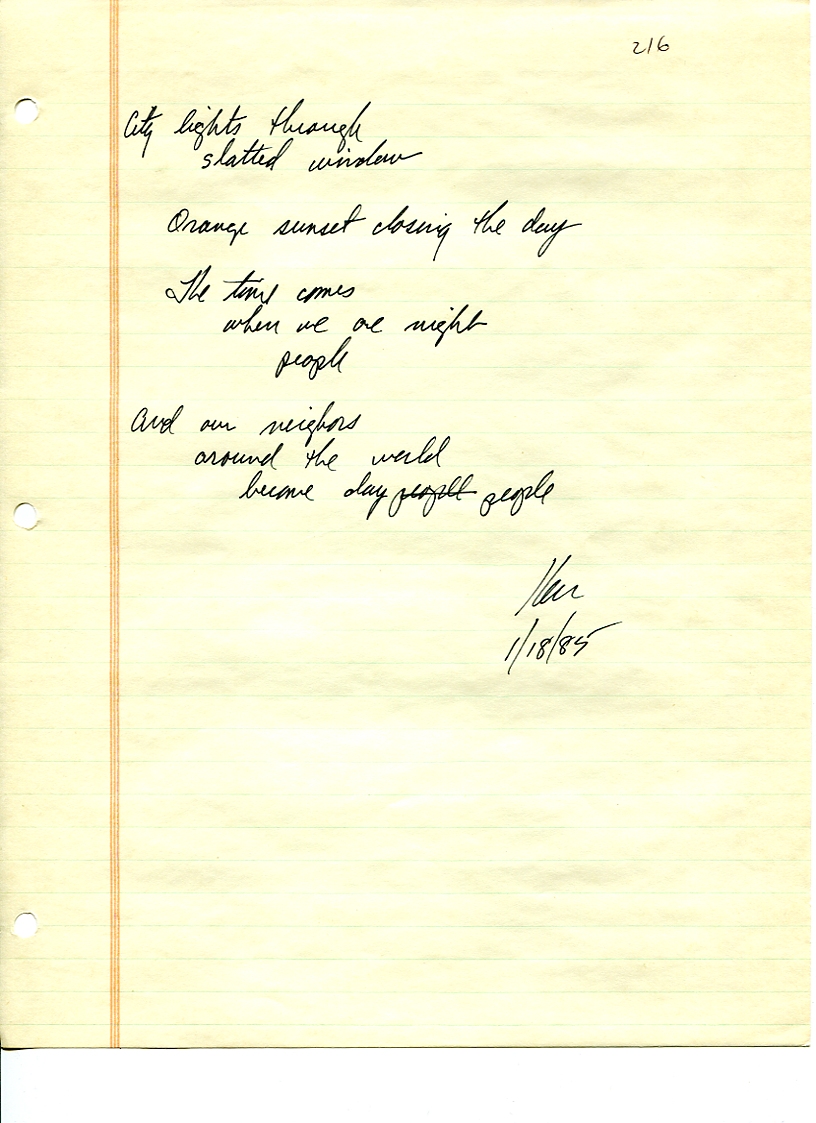 216
City lights through
slatted window
Orange sunset closing the day
The time comes
when we are night
people
And our neighbors
around the world
become day people people
Ken
1/18/85